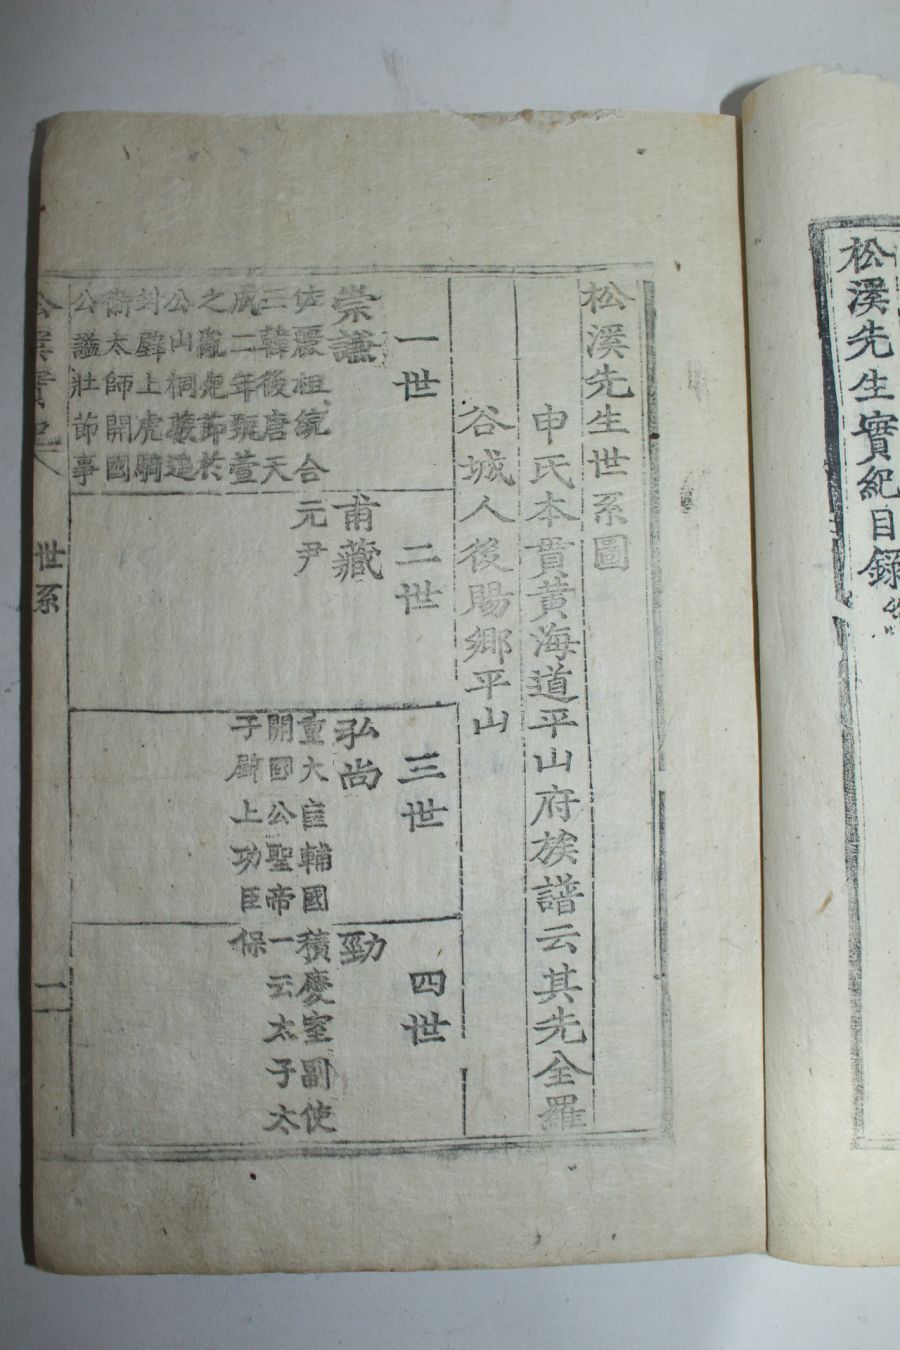 松溪先生實紀目錄終
松溪先生世系圖
申氏本貫黃海道平山府族譜云其先全羅
谷城人後賜鄕平山
一世
崇謙
佐麗祖統合
三韓後唐天
成二年甄萱
之亂死節於
公山桐藪追
封壁上虎騎
衛太師開國
公謚壯節事
二世
甫藏
元尹
三世
弘尚
重大匡輔國
開國公聖帝
子壁上功臣
四世
勁
積慶室副使
一云太子太
保
世系
一